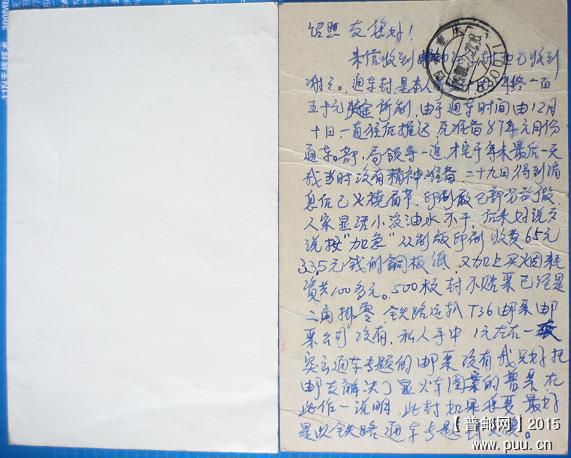 绍照友您好！
来信收到 也已收到
谢之。通车封是本人 年终一百
五十元奖金所制，由于通车时间由12月
十日一直往后推迟，先准备87年元月份
通车。部、局领导一追，才定于年末最后一天
我当时没有精神准备，二十九日得到消
息后已火烧眉茅，印刷厂已部分放假
人家显活小没油水不干，后来好说
说按“加急”从制版印刷收费65元
33.5元钱的铜板纸，又加上买烟耗
资共100多元。500枚封不贴票已经是
二角挂零，铁路运输T36邮票邮
票公司没有，私人手中1元左右一
实之通车专题的邮票没有我只好把
邮友解决了显火车图案的普票在
此作一说明，此封如果 要最好
是以铁路通车专题
【普邮网】2015
www.puu.cn